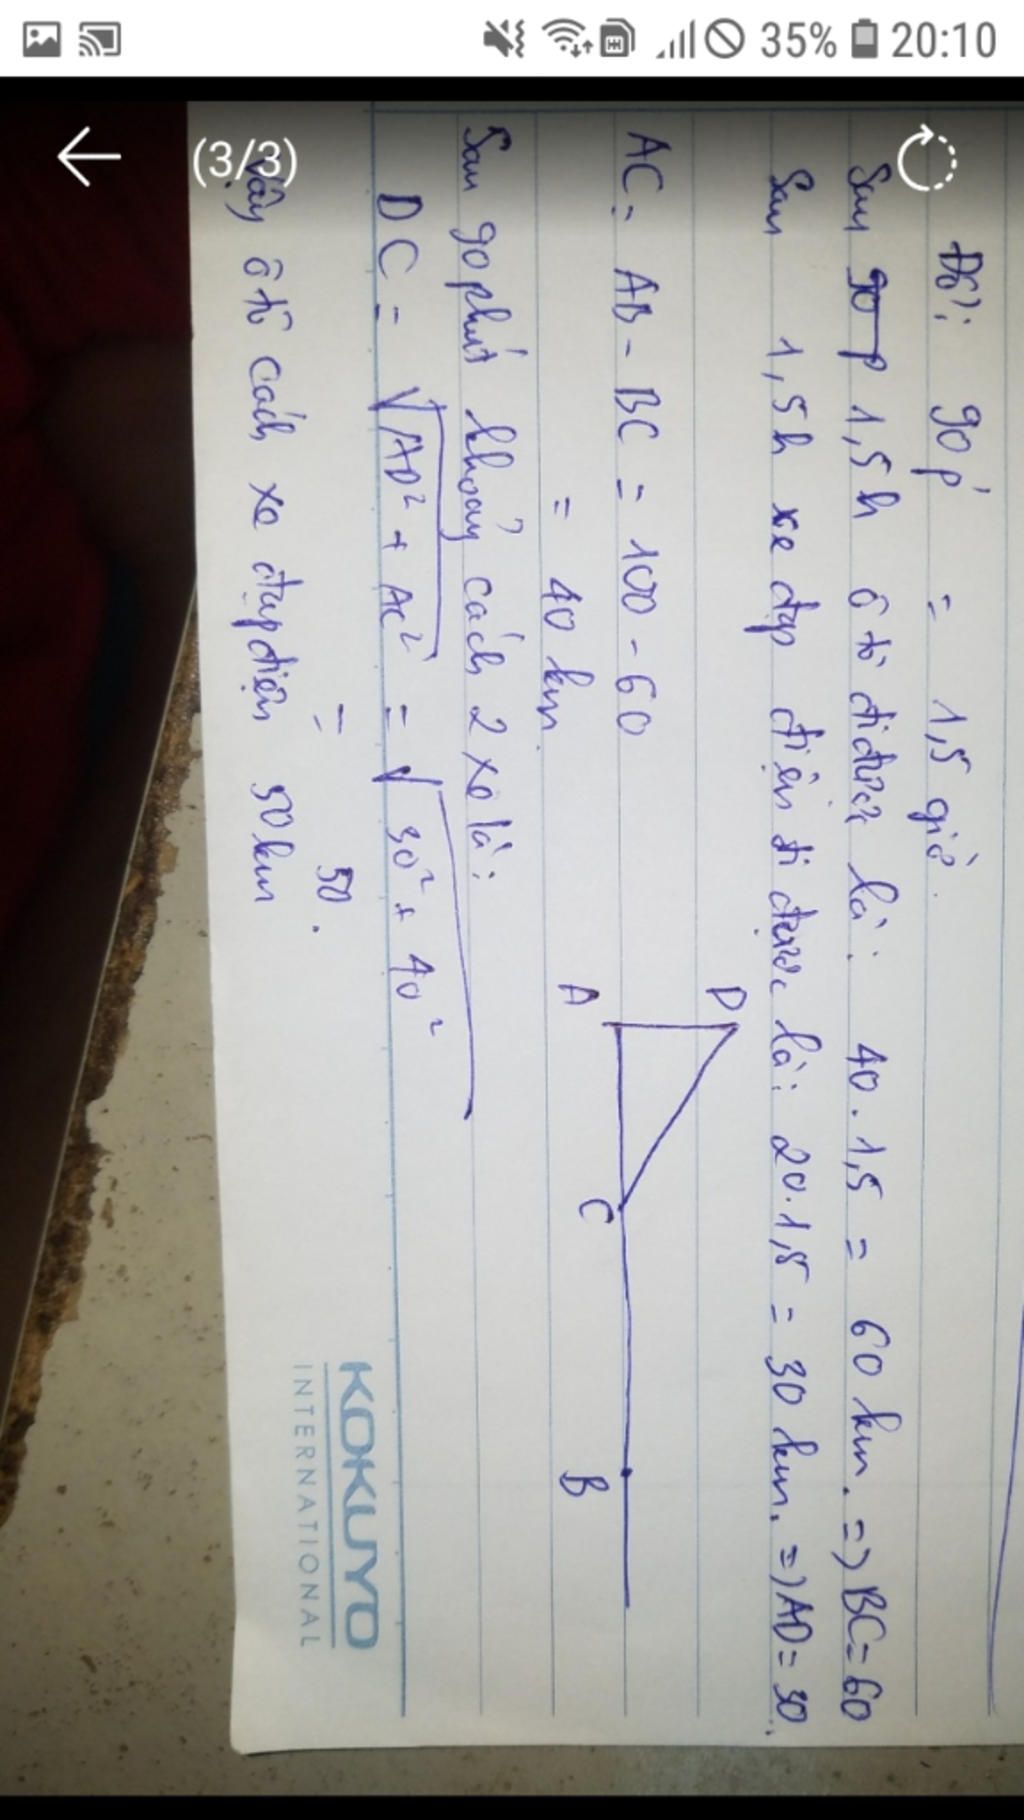 35% 20:10
(3/3)
Đổi: 90p' = 1,5 giờ.
Sau 90p 1,5h ô tô đi được là: 40.1,5 = 60 km. => BC=60
Sau 1,5h xe đạp điện đi được là: 20.1,5 = 30 km. => AD=30.
AC = AB - BC = 100 - 60
= 40 km.
D
A C B
Sau 90 phút khoảng cách 2 xe là:
DC = √AD² + AC² = √30² + 40²
= 50.
Vậy ô tô cách xe đạp điện 50km
KOKUYO
INTERNATIONAL